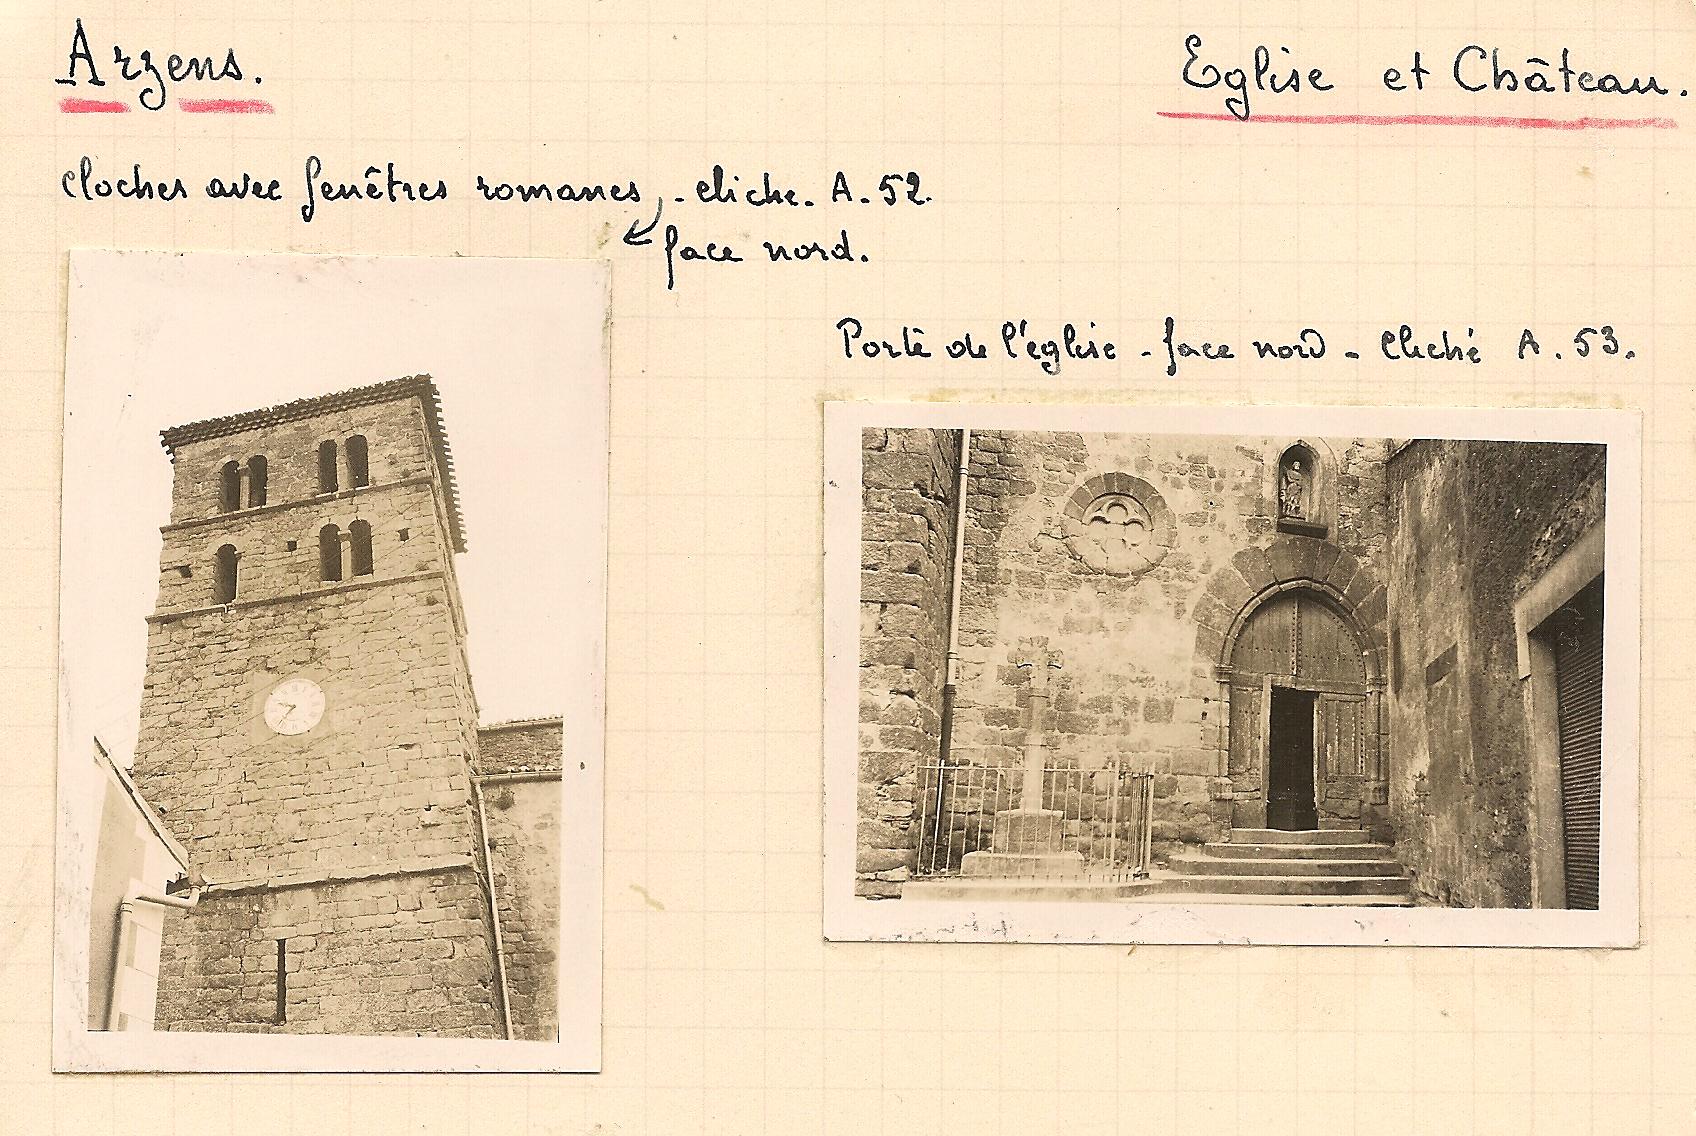 Arzens.
Eglise et Château.
Clocher avec fenêtres romanes. - cliche. A. 52.
face nord.
Porte de l'église - face nord - Cliché A. 53.